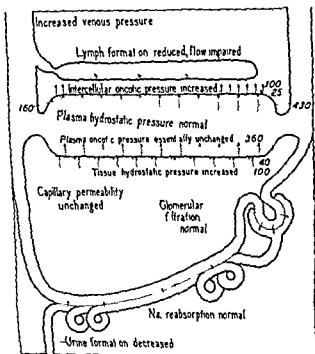 Increased venous pressure
Lymph formation reduced, flow impaired
Intercellular oncotic pressure increased
100
25
160
430
Plasma hydrostatic pressure normal
Plasma oncotic pressure essentially unchanged
360
40
Tissue hydrostatic pressure increased
100
Capillary permeability
unchanged
Glomerular
filtration
normal
Na. reabsorption normal
Urine formation decreased